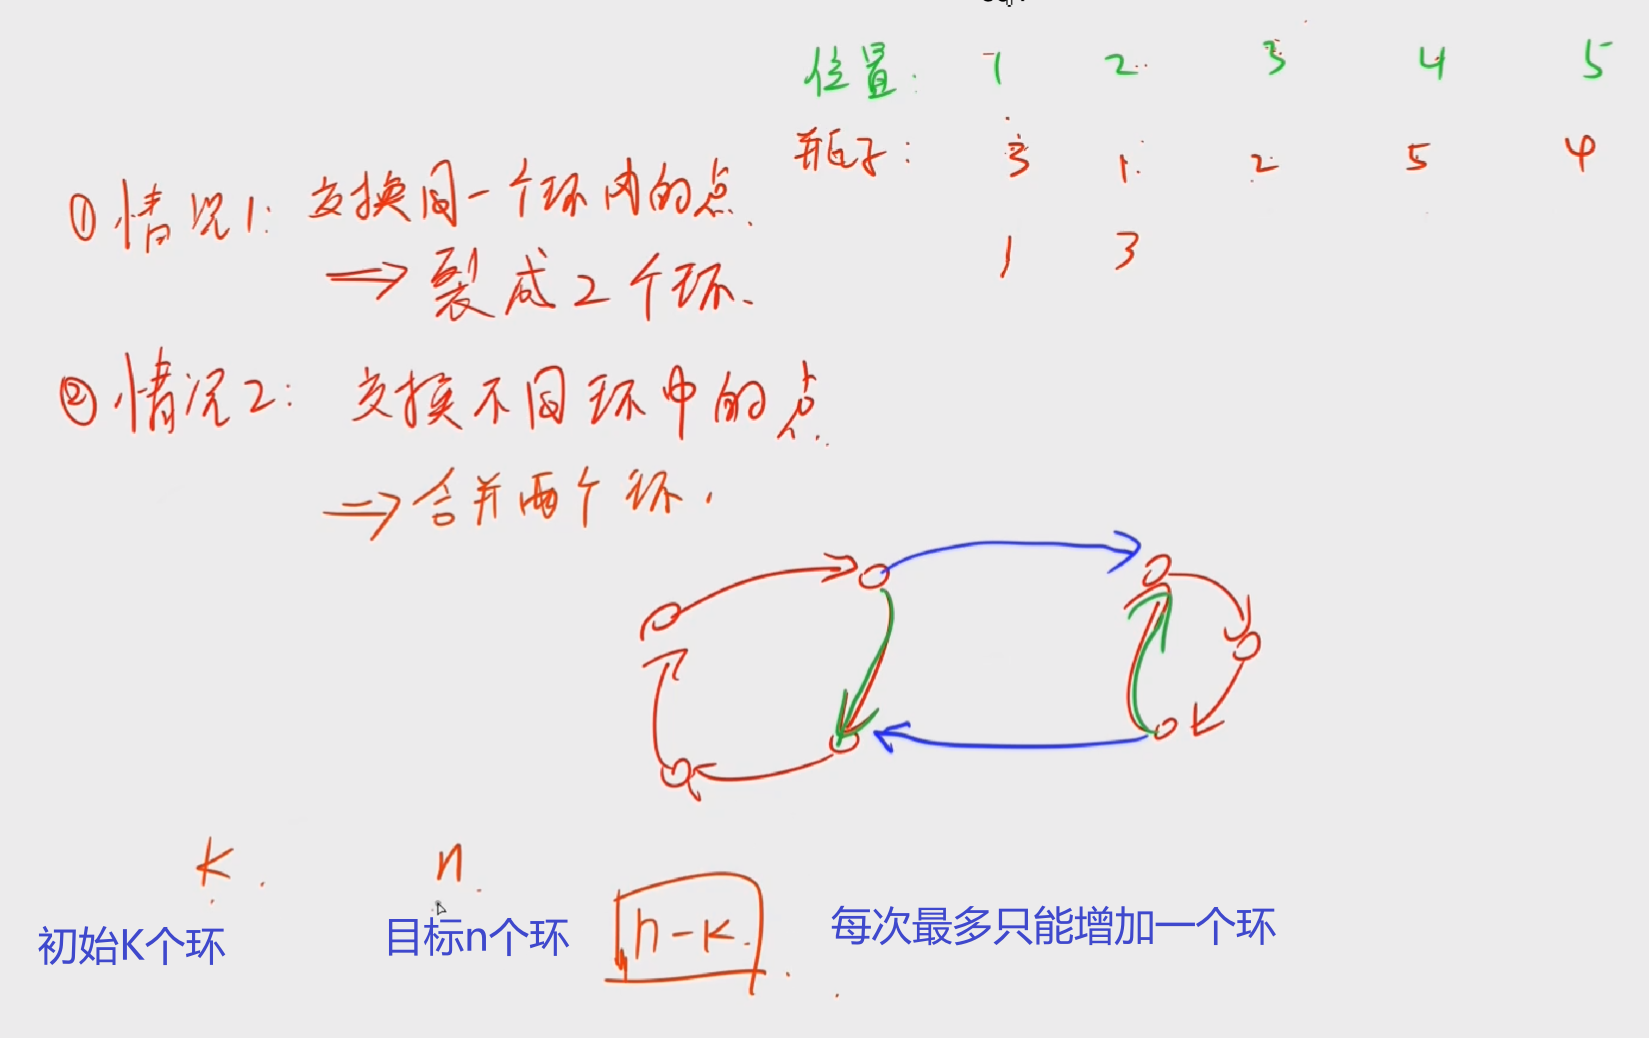 位置: 1 2 3 4 5
瓶子: 3 1 2 5 4
1 3
①情况1: 交换同一个环内的点.
⇒ 裂成2个环.
②情况2: 交换不同环中的点.
⇒合并两个环.
K. n.
初始K个环 目标n个环 n-K. 每次最多只能增加一个环